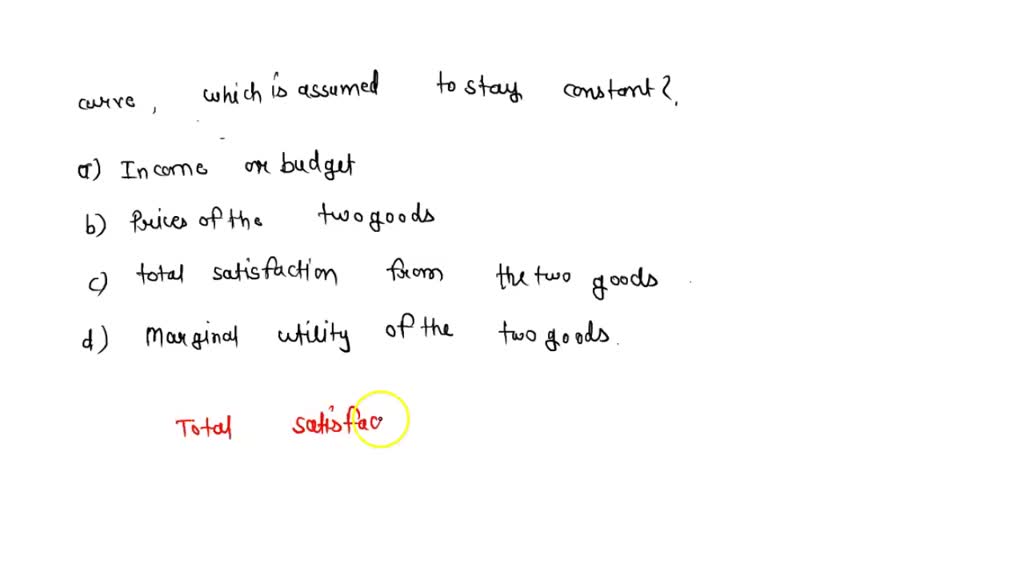 curve, which is assumed to stay constant?
a) Income or budget
b) Prices of the two goods
c) total satisfaction from the two goods
d) Marginal utility of the two goods.
Total satisfac